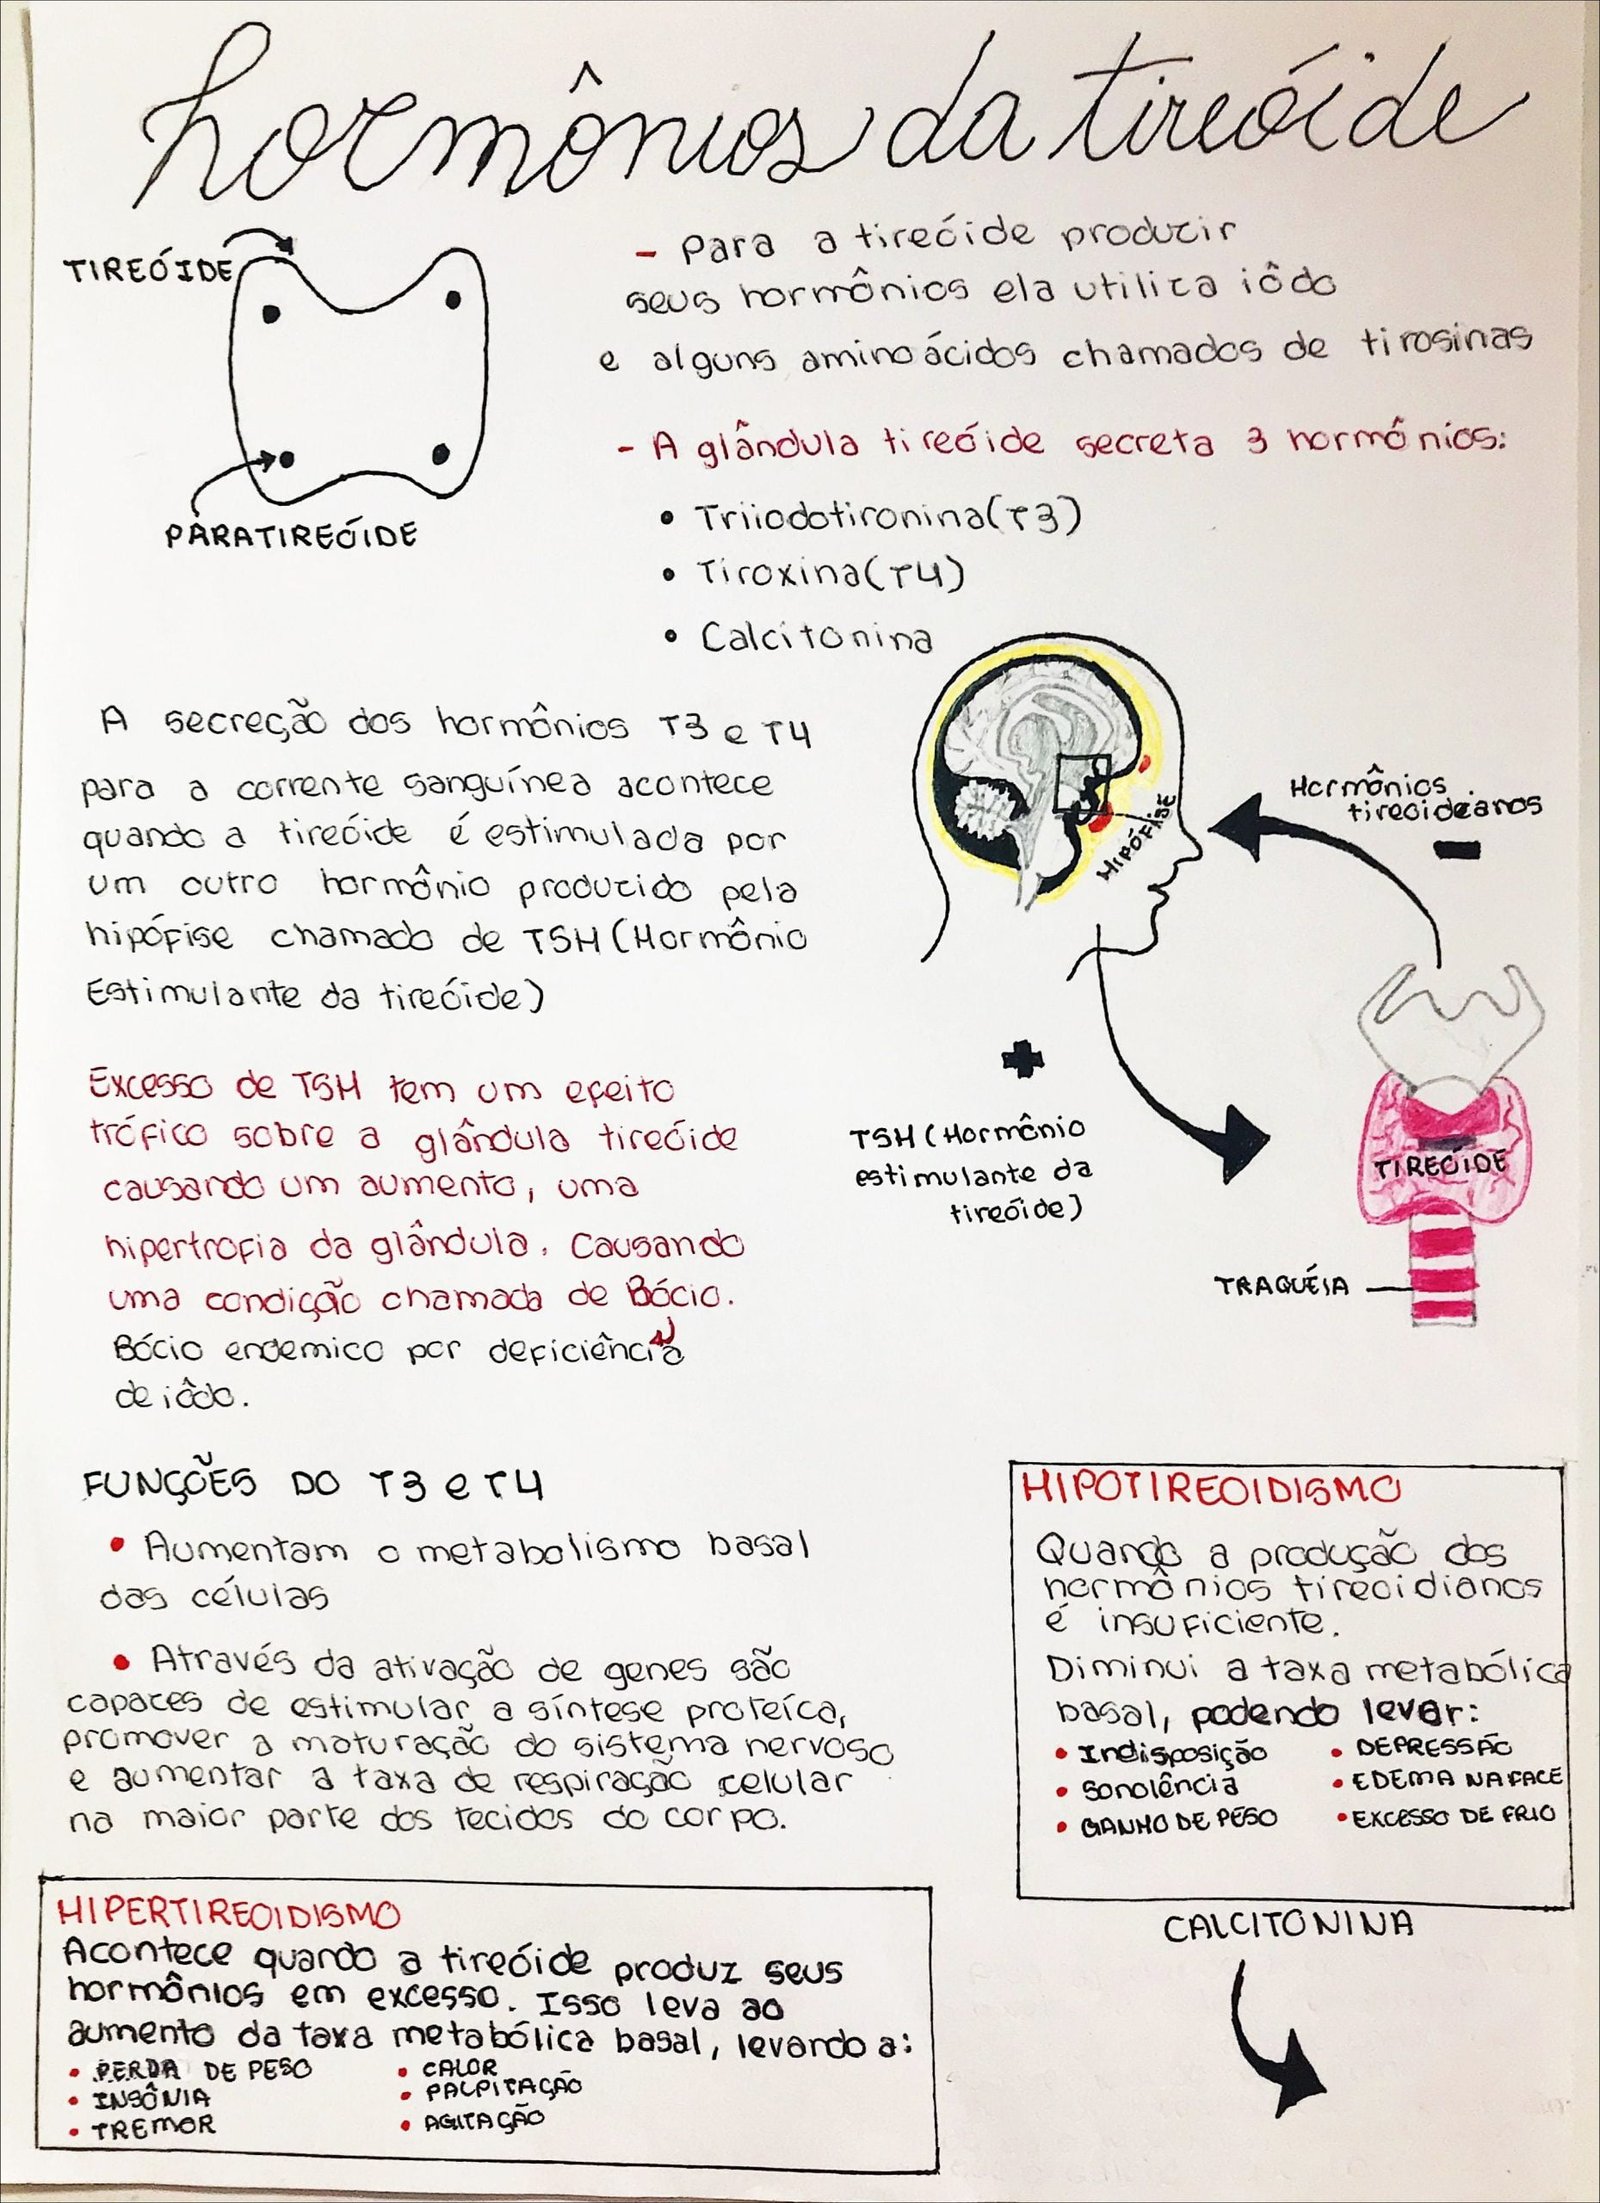 hormônios da tireóide
TIREÓIDE
PARATIREÓIDE
- Para a tireóide produzir
seus hormônios ela utiliza iôdo
e alguns aminoácidos chamados de tirosinas
- A glândula tireóide secreta 3 hormônios:
• Triiodotironina(T3)
• Tiroxina(T4)
• Calcitonina
A secreção dos hormônios T3 e T4
para a corrente sanguínea acontece
quando a tireóide é estimulada por
um outro hormônio produzido pela
hipófise chamado de TSH (Hormônio
Estimulante da tireóide)
HIPÓFISE
Hormônios
tireoideanos
-
+
TSH (Hormônio
estimulante da
tireóide)
TIREÓIDE
TRAQUÉIA
Excesso de TSH tem um efeito
trófico sobre a glândula tireóide
causando um aumento, uma
hipertrofia da glândula. Causando
uma condição chamada de Bócio.
Bócio endemico por deficiência
de iôdo.
FUNÇÕES DO T3 e T4
• Aumentam o metabolismo basal
das células
• Através da ativação de genes são
capazes de estimular a síntese proteíca,
promover a maturação do sistema nervoso
e aumentar a taxa de respiração celular
na maior parte dos tecidos do corpo.
HIPOTIREOIDISMO
Quando a produção dos
hormônios tireoidianos
é insuficiente.
Diminui a taxa metabólica
basal, podendo levar:
• Indisposição
• Sonolência
• GANHO DE PESO
• DEPRESSÃO
• EDEMA NA FACE
• EXCESSO DE FRIO
HIPERTIREOIDISMO
Acontece quando a tireóide produz seus
hormônios em excesso. Isso leva ao
aumento da taxa metabólica basal, levando a:
• PERDA DE PESO
• INSÔNIA
• TREMOR
• CALOR
• PALPITAÇÃO
• AGITAÇÃO
CALCITONINA